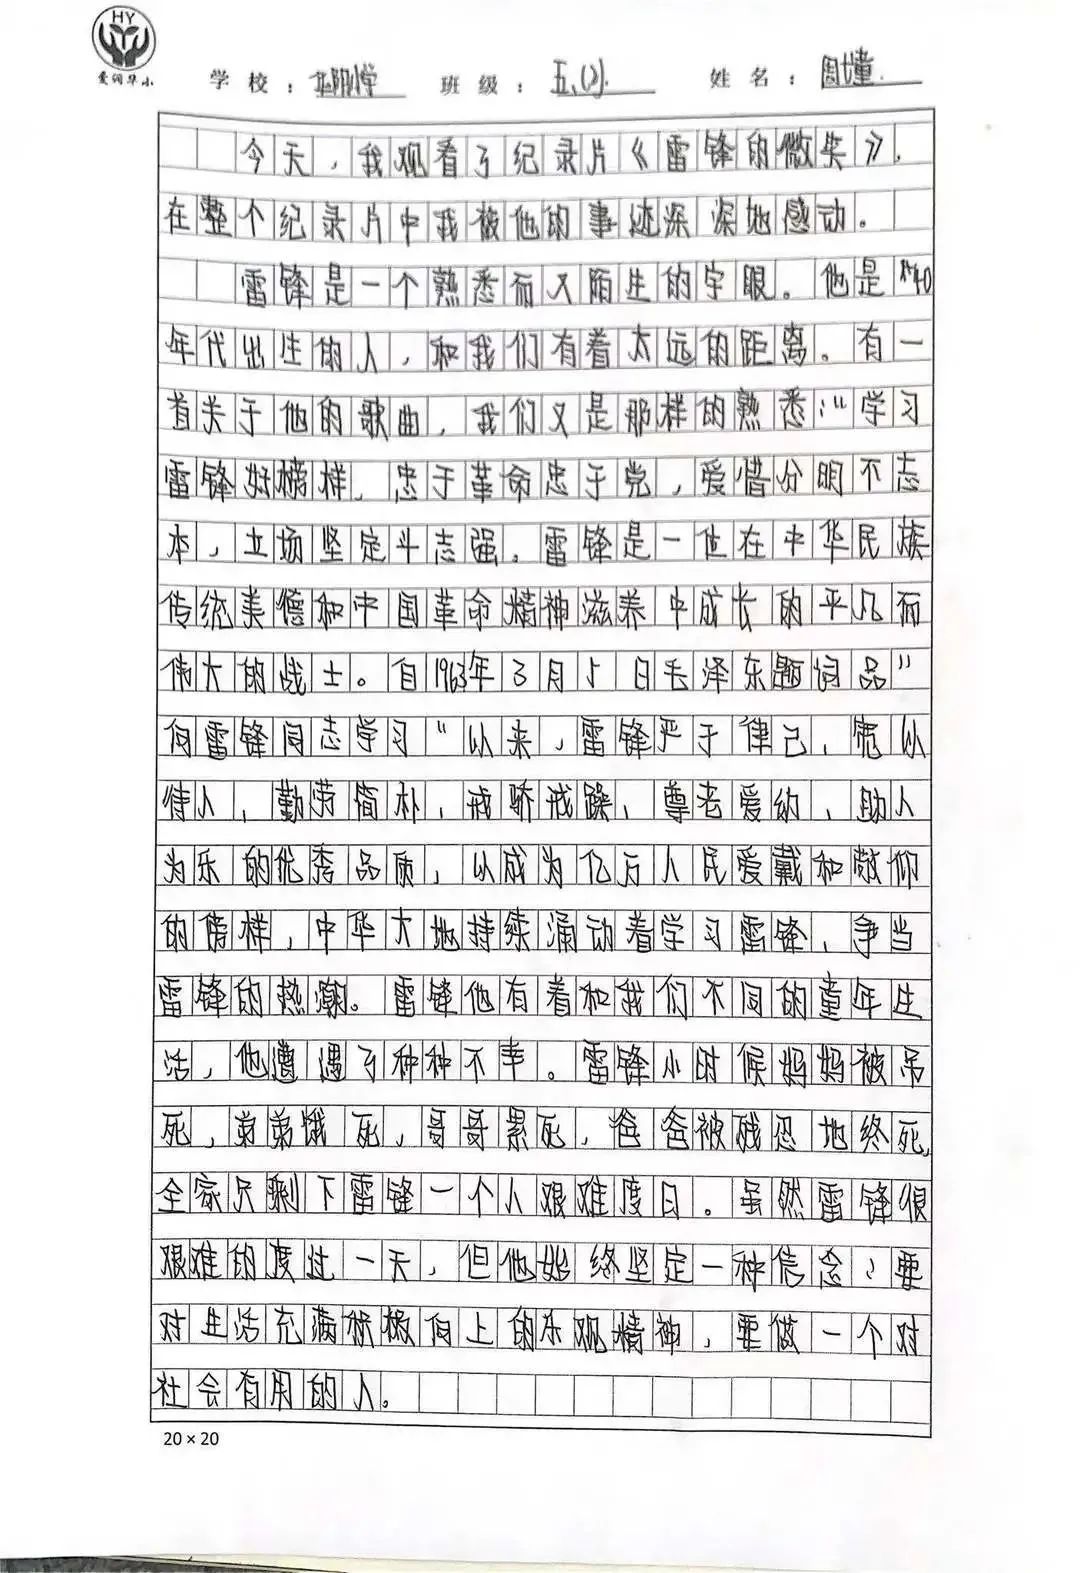 HY
爱润华小
学校： 班级：五、(2). 姓名：周
今天，我观看了纪录片《雷锋的微笑》，
在整个纪录片中我被他的事迹深深地感动。
雷锋是一个熟悉而又陌生的字眼。他是40
年代出生的人，和我们有着太远的距离。有一
首关于他的歌曲，我们又是那样的熟悉："学习
雷锋好榜样，忠于革命忠于党，爱惜分明不志
本，立场坚定斗志强。雷锋是一位在中华民族
传统美德和中国革命精神滋养中成长的平凡而
伟大的战士。自1963年3月5日毛泽东题词品"
向雷锋同志学习"以来，雷锋严于律己，宽以
待人，勤劳简朴，戒骄戒躁，尊老爱幼，助人
为乐的优秀品质，以成为亿万人民爱戴和敬仰
的榜样，中华大地持续涌动着学习雷锋、争当
雷锋的热潮。雷锋他有着和我们不同的童年生
活，他遭遇了种种不幸。雷锋小时候妈妈被吊
死，弟弟饿死，哥哥累死，爸爸被残忍地终死，
全家只剩下雷锋一个人艰难度日。虽然雷锋很
艰难的度过一天，但他始终坚定一种信念：要
对生活充满积极向上的乐观精神，要做一个对
社会有用的人。
20×20